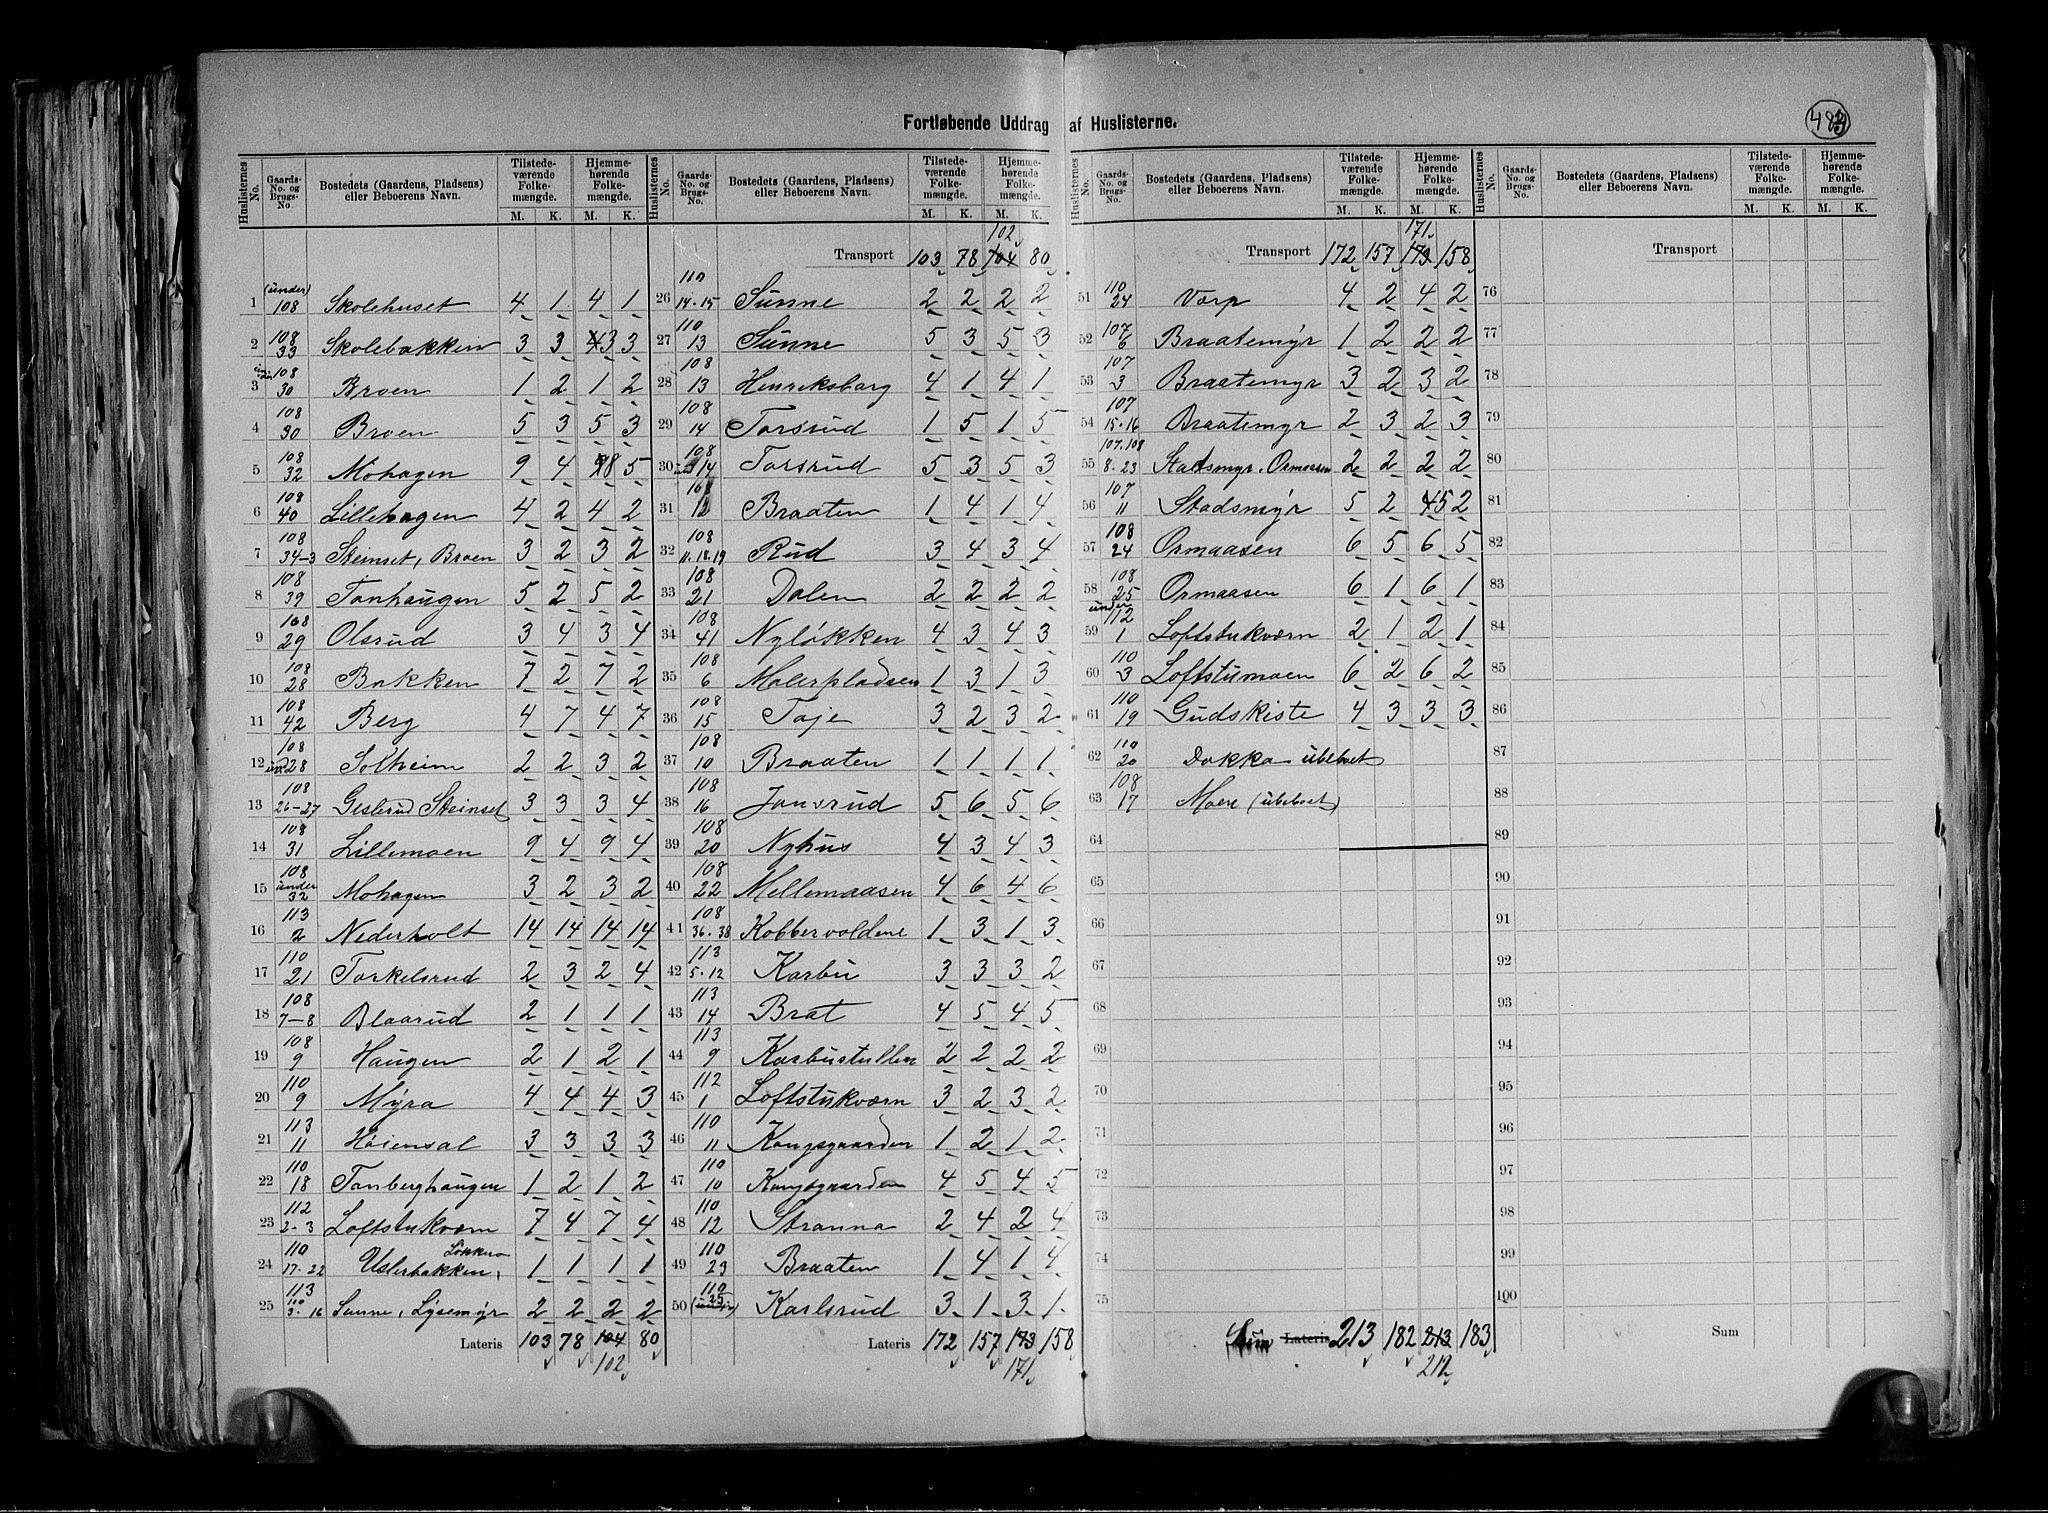 Fortløbende Uddrag af Huslisterne.
483
Huslisternes No. | Gaards-No. og Brugs-No. | Bostedets (Gaardens, Pladsens) eller Beboerens Navn. | Tilstedeværende Folkemængde. M. K. | Hjemmehørende Folkemængde. M. K.
1 (under) 108 Skolehuset 4 1 4 1
2 108 33 Skolebakken 3 3 4 3 3
3 under 108 30 Broen 1 2 1 2
4 108 30 Broen 5 3 5 3
5 108 32 Mohagen 9 4 8 5
6 108 40 Lillehagen 4 2 4 2
7 108 34-3 Steinset, Broen 3 2 3 2
8 108 39 Tonhaugen 5 2 5 2
9 108 29 Olsrud 3 4 3 4
10 108 28 Bakken 7 2 7 2
11 108 42 Berg 4 7 4 7
12 108 und. 28 Solheim 2 2 3 2
13 108 26-27 Gislerud Steinset 3 3 3 4
14 108 31 Lillemoen 9 4 9 4
15 108 under 32 Mohagen 3 2 3 2
16 113 2 Nederholt 14 14 14 14
17 110 21 Torkelsrud 2 3 2 4
18 108 7-8 Blaarud 2 1 1 1
19 108 9 Haugen 2 1 2 1
20 110 9 Myra 4 4 4 3
21 113 11 Høiensal 3 3 3 3
22 110 18 Tonberghaugen 1 2 1 2
23 112 2-3 Loftstukværn 7 4 7 4
24 110 17-22 Uslerbakken, Løkkero 1 1 1 1
25 113 110 3. 16 Sunne, Lysemyr 2 2 2 2
Lateris 103 78 104 80
102
Transport 103 78 104 80
102
26 110 14-15 Sunne 2 2 2 2
27 110 13 Sunne 5 3 5 3
28 108 13 Henriksborg 4 1 4 1
29 108 14 Torsrud 1 5 1 5
30 108 14 Torsrud 5 3 5 3
31 108 12 Braaten 1 4 1 4
32 108 11.18.19 Rud 3 4 3 4
33 108 21 Dalen 2 2 2 2
34 108 41 Nyløkken 4 3 4 3
35 108 6 Molerpladsen 1 3 1 3
36 108 15 Toje 3 2 3 2
37 108 10 Braaten 1 1 1 1
38 108 16 Jonsrud 5 6 5 6
39 108 20 Nyhus 4 3 4 3
40 108 22 Mellemaasen 4 6 4 6
41 108 36-38 Kobbervoldene 1 3 1 3
42 113 5-12 Karbu 3 3 3 2
43 113 14 Brat 4 5 4 5
44 113 9 Karbustullen 2 2 2 2
45 112 1 Loftstukværn 3 2 3 2
46 110 11 Kongsgaarden 1 2 1 2
47 110 10 Kongsgaarden 4 5 4 5
48 110 12 Stranna 2 4 2 4
49 110 23 Braaten 1 4 1 4
50 110 25 (under) Karlsrud 3 1 3 1
Lateris 172 157 173 158
171
Transport 172 157 173 158
171
51 110 24 Vorp 4 2 4 2
52 107 6 Braatemyr 1 2 2 2
53 107 3 Braatemyr 3 2 3 2
54 107 15-16 Braatemyr 2 3 2 3
55 107.108 8.23 Stadsmyr. Ormaasen 2 2 2 2
56 107 11 Stadsmyr 5 2 4 5 2
57 108 24 Ormaasen 6 5 6 5
58 108 25 Ormaasen 6 1 6 1
59 under 112 1 Loftstukværn 2 1 2 1
60 110 3 Loftstumoen 6 2 6 2
61 110 19 Gudskiste 4 3 3 3
62 110 20 Dokka ubeboet
63 108 17 Moere (ubeboet)
64
65
66
67
68
69
70
71
72
73
74
75
Sum Lateris 213 182 213 183
212
Transport
76
77
78
79
80
81
82
83
84
85
86
87
88
89
90
91
92
93
94
95
96
97
98
99
100
Sum